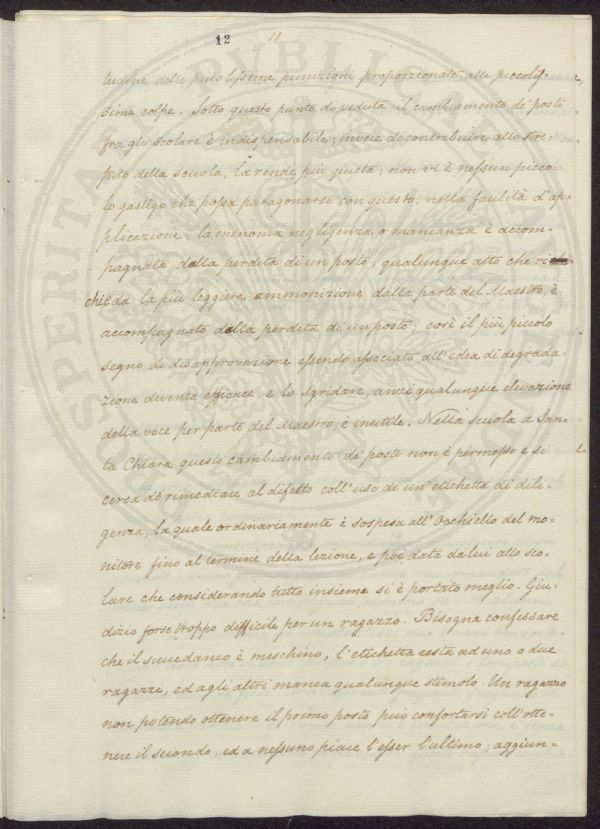 12 11
tudine delle piccolissime punizioni proporzionate alle piccolis-
sime colpe. Sotto questo punto di veduta il cambiamento de' posti
fra gli scolari è indispensabile; invece di contribuire allo stre-
pito della scuola, la rende più quieta; non vi è nessun picco-
lo gastigo che possa paragonarsi con questo, nella facilità d'ap-
plicazione; la menoma negligenza, o mancanza è accom-
pagnata dalla perdita di un posto; qualunque atto che ri
chieda la più leggiera ammonizione dalla parte del Maestro, è
accompagnato dalla perdita di un posto; così il più piccolo
segno di disapprovazione essendo associato all'idea di degrada-
zione diventa efficace, e lo sgridare, anzi qualunque elevazione
della voce per parte del Maestro, è inutile. Nella scuola a San-
ta Chiara questo cambiamento de' posti non è permesso e si
cerca di rimediare al difetto coll'uso di un'etichetta di dili-
genza, la quale ordinariamente è sospesa all'occhiello del mo-
nitore fino al termine della lezione, e poi data da lui allo sco-
lare che considerando tutto insieme si è portato meglio. Giu-
dizio forse troppo difficile per un ragazzo. Bisogna confessare
che il succedaneo è meschino, l'etichetta resta ad uno o due
ragazzi, ed agli altri manca qualunque stimolo. Un ragazzo
non potendo ottenere il primo posto può confortarsi coll'otte-
nere il secondo, ed a nessuno piace l'esser l'ultimo; aggiun-
PROSPERITATI PUBLICAE